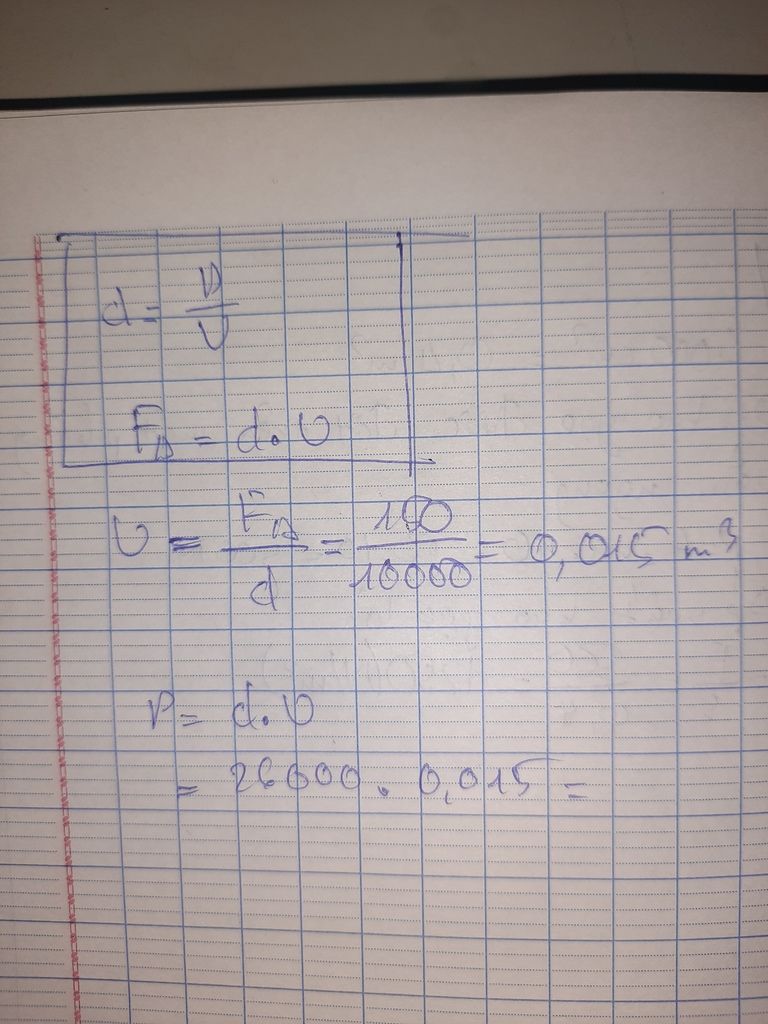 d = P/V
F_A = d.V
V = F_A/d = 150/10000 = 0,015 m³
P = d.V
= 26000 . 0,015 =